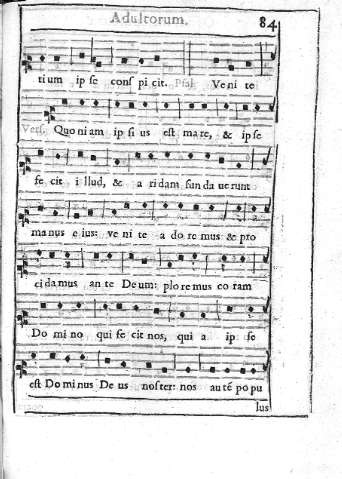 Adultorum.
84
tium ip se cons pi cit. Psal. Ve ni te
Vers. Quo ni am ip si us est ma re, & ip se
fe cit i llud, & a ri dam fun da ue runt
ma nus e ius: ve ni te a do re mus & pro
ci da mus an te De um: plo re mus co ram
Do mi no qui fe cit nos, qui a ip se
est Do mi nus De us nos ter: nos au tē po pu
lus